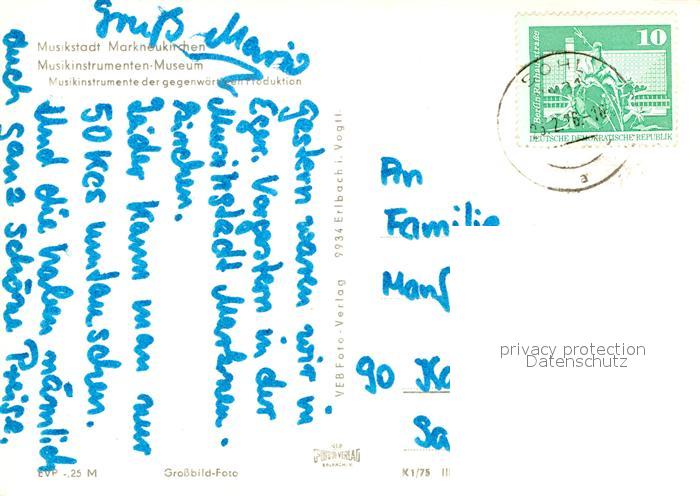 Gruß Maria
Musikstadt Markneukirchen
Musikinstrumenten-Museum
Musikinstrumente der gegenwärtigen Produktion
Gestern waren wir in
Eger. Vorgestern in der
Musikstadt Markneu-
kirchen.
Leider kann man nur
50 Kcs umtauschen.
Und die haben nämlich
auch ganz schöne Preise.
VEB Foto-Verlag 9934 Erlbach i. Vogtl.
10
Berlin, Rathausstraße
DEUTSCHE DEMOKRATISCHE REPUBLIK
a
An
Familie
90
privacy protection
Datenschutz
EVP -,25 M
Großbild-Foto
VEB
FOTO-VERLAG
ERLBACH
K1/75